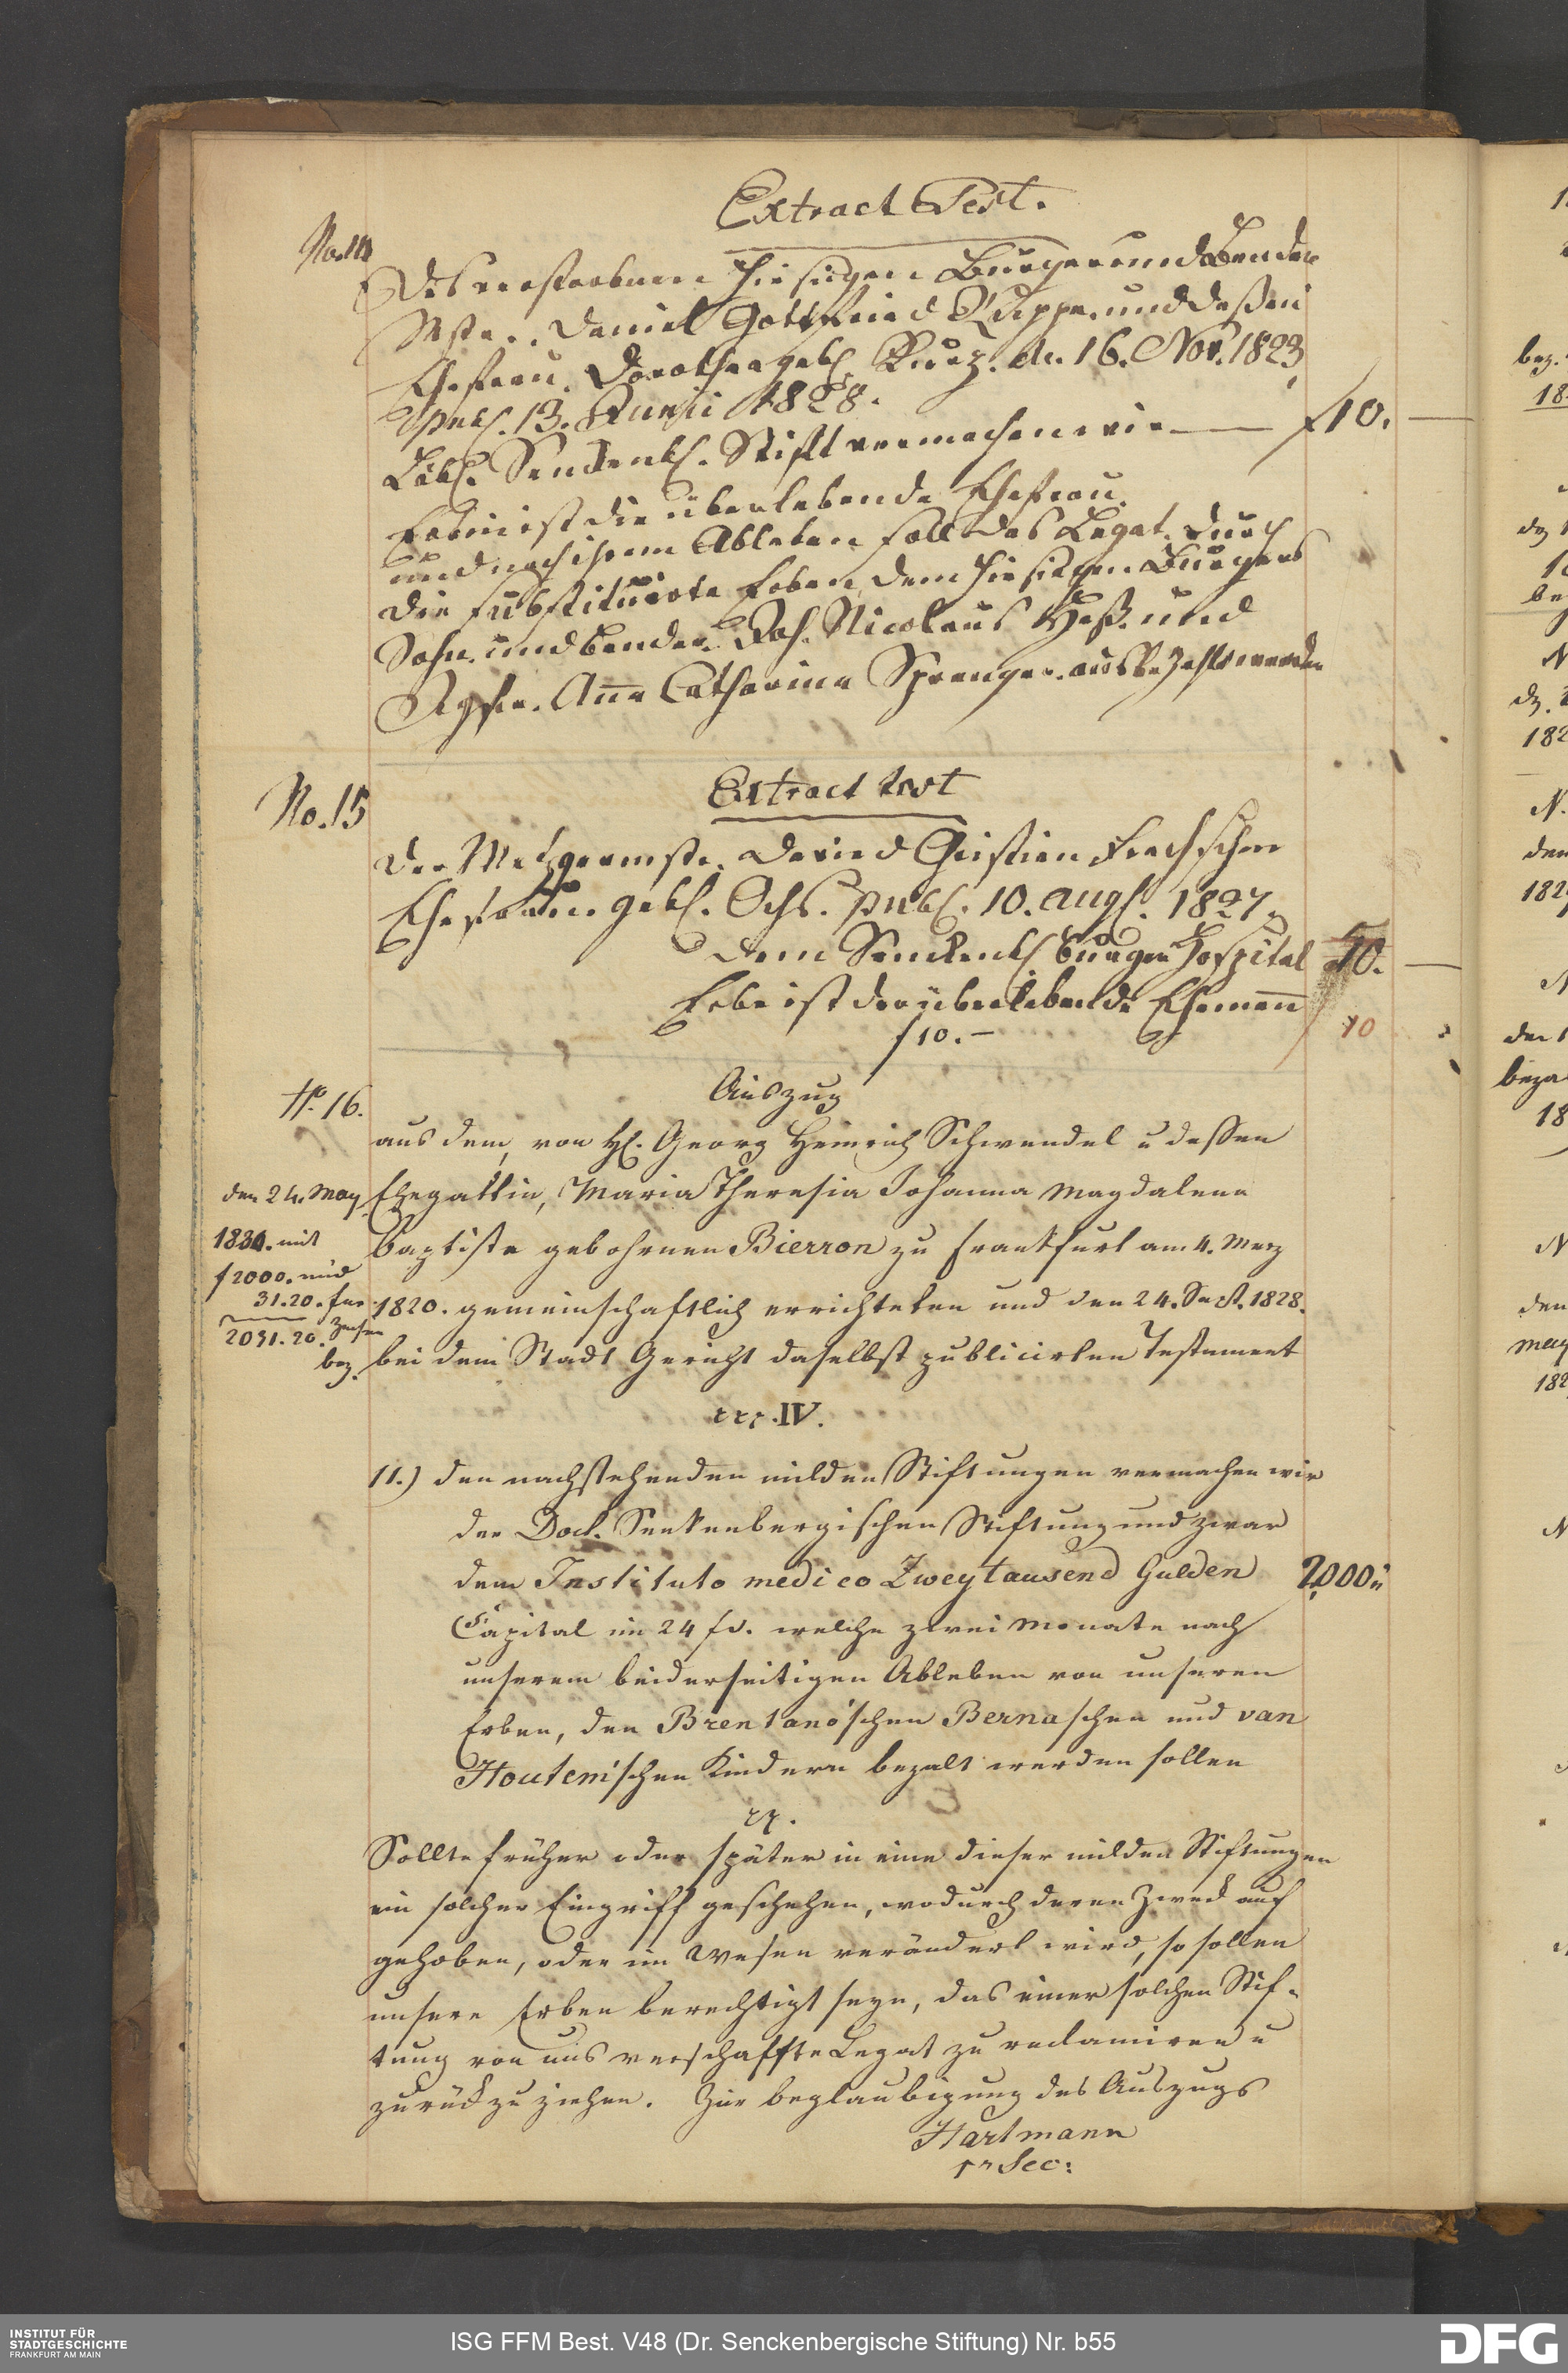 Extract Test.
No. 14
Des verstorbenen hiesigen Burger und Bender
Mstr. Daniel Gottfried Kupper und deßen
Ehefrau Dorothea geb. Kurz. de. 16. Nov. 1823
pub. 13. Junii 1828.
Löbl. Senckenb. Stift vermachen wir — f 10. —
Erbin ist die überlebende Ehefrau
und nach ihrem Ableben soll das Legat durch
die substituirte Erben dem hiesigen Burgers
Sohn und Bender Joh. Nicolaus Heß und
Jgfr. Anna Catharina Sprenger ausbezahlt werden
No. 15
Extract test
Der Metzgermstr. David Christian Frech'schen
Ehefrauen geb. Ochs. pub. 10. Aug. 1827
dem Senckenb Burger Hospital 10. —
Erbe ist der überlebende Ehemann
f 10. —
10
No. 16.
Auszug
aus dem, von H. Georg Heinrich Schwendel u dessen
Ehegattin, Maria Theresia Johanna Magdalena
Baptista gebohrnen Bierron zu Frankfurt am 4. Merz
1820. gemeinschaftlich errichteten und den 24. Sept. 1828.
bei dem Stadt Gericht daselbst publicirten Testament
den 24. May
1830. mit
f 2000. und
31.20. für
2031.20. Zinsen
bez.
IV.
11.) den nachstehenden milden Stiftungen vermachen wir
der Doct. Senkenbergischen Stiftung und zwar
dem Instituto medico Zweytausend Gulden 2000
Capital im 24 fl. welche zwei Monate nach
unserem beiderseitigen Ableben von unseren
Erben, den Brentano'schen Bernaschen und van
Houten'schen Kindern bezalt werden sollen
Sollte früher oder später in eine dieser milden Stiftungen
ein solcher Eingriff geschehen, wodurch deren Zweck auf
gehoben, oder im Wesen verändert wird, so sollen
unsere Erben berechtigt seyn, das einer solchen Stif-
tung von uns verschaffte Legat zu reclamiren u
zurückzuziehen. Zur Beglaubigung des Auszugs
Hartmann
Sec:
INSTITUT FÜR
STADTGESCHICHTE
FRANKFURT AM MAIN
ISG FFM Best. V48 (Dr. Senckenbergische Stiftung) Nr. b55
DFG